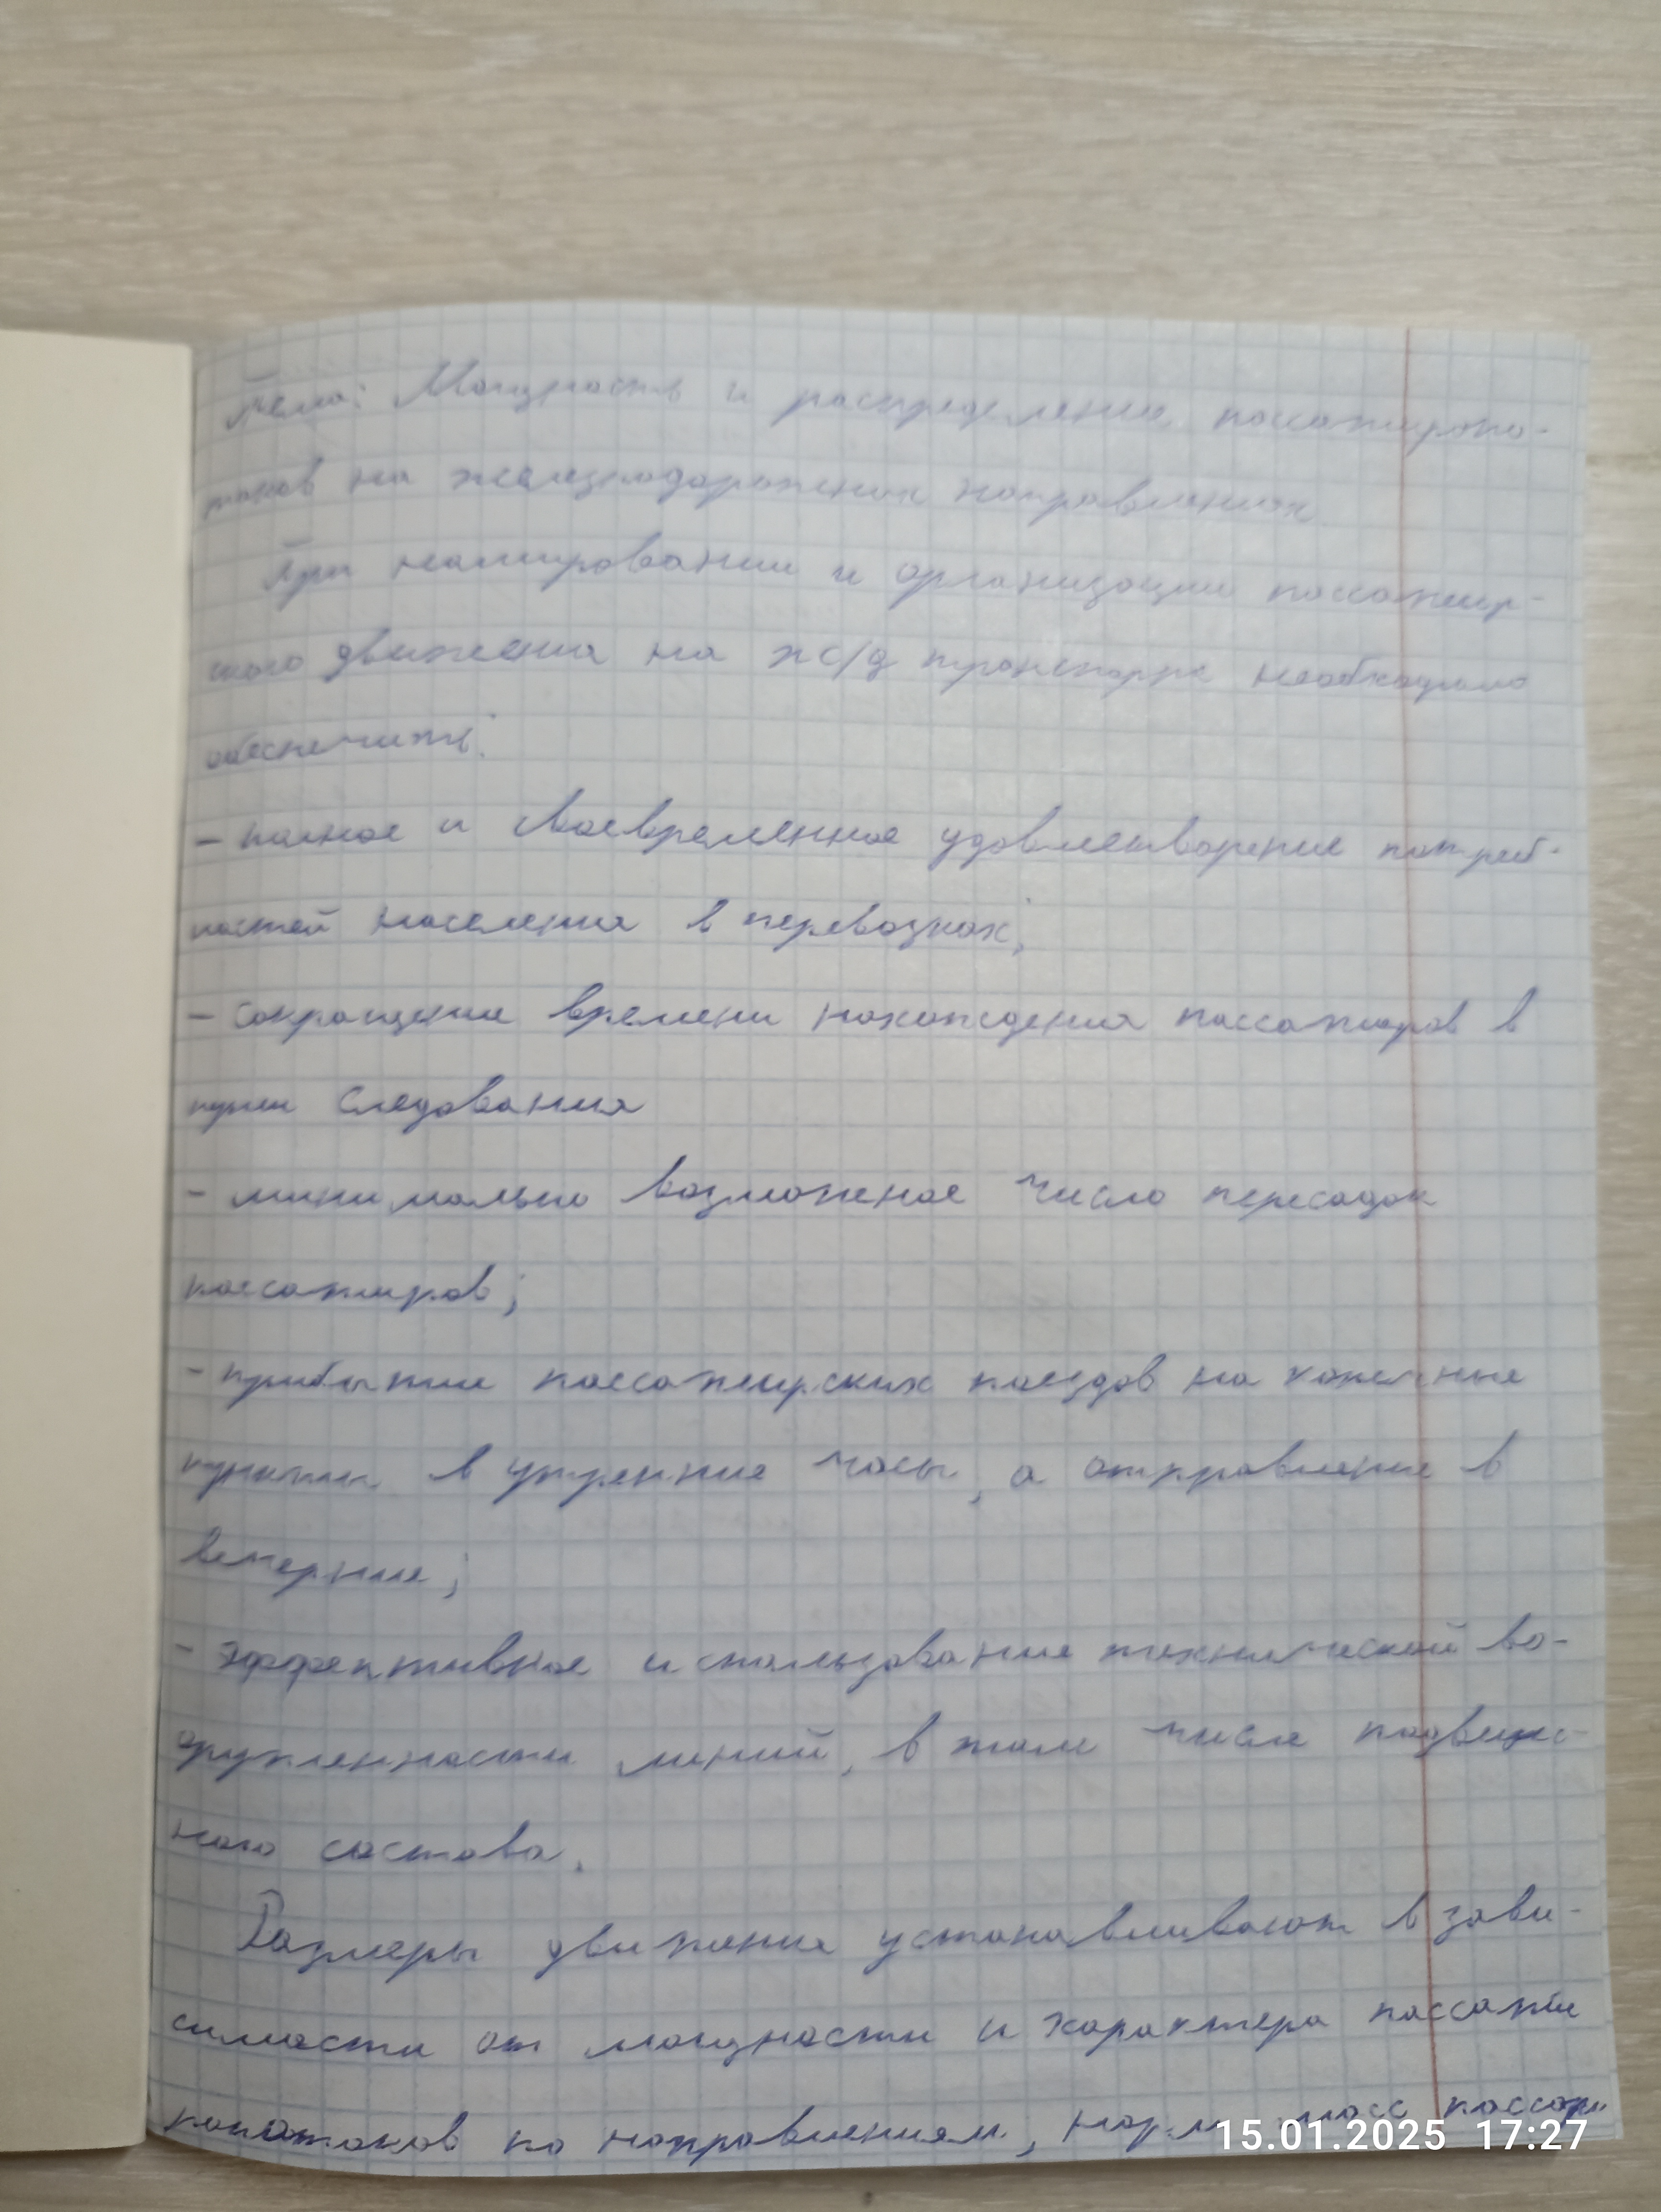 Тема: Мощность и распределение пассажиропо-
токов на железнодорожных направлениях
При планировании и организации пассажир-
ского движения на ж/д транспорте необходимо
обеспечить:
- полное и своевременное удовлетворение потреб-
ностей населения в перевозках;
- сокращение времени нахождения пассажиров в
пути следования
- минимально возможное число пересадок
пассажиров;
- прибытие пассажирских поездов на конечные
пункты в утренние часы, а отправление в
вечерние;
- эффективное использование технической во-
оруженности линий, в том числе подвиж-
ного состава.
Размеры движения устанавливают в зави-
симости от мощности и характера пассажи
по направлениям, норм масс
15.01.2025 17:27